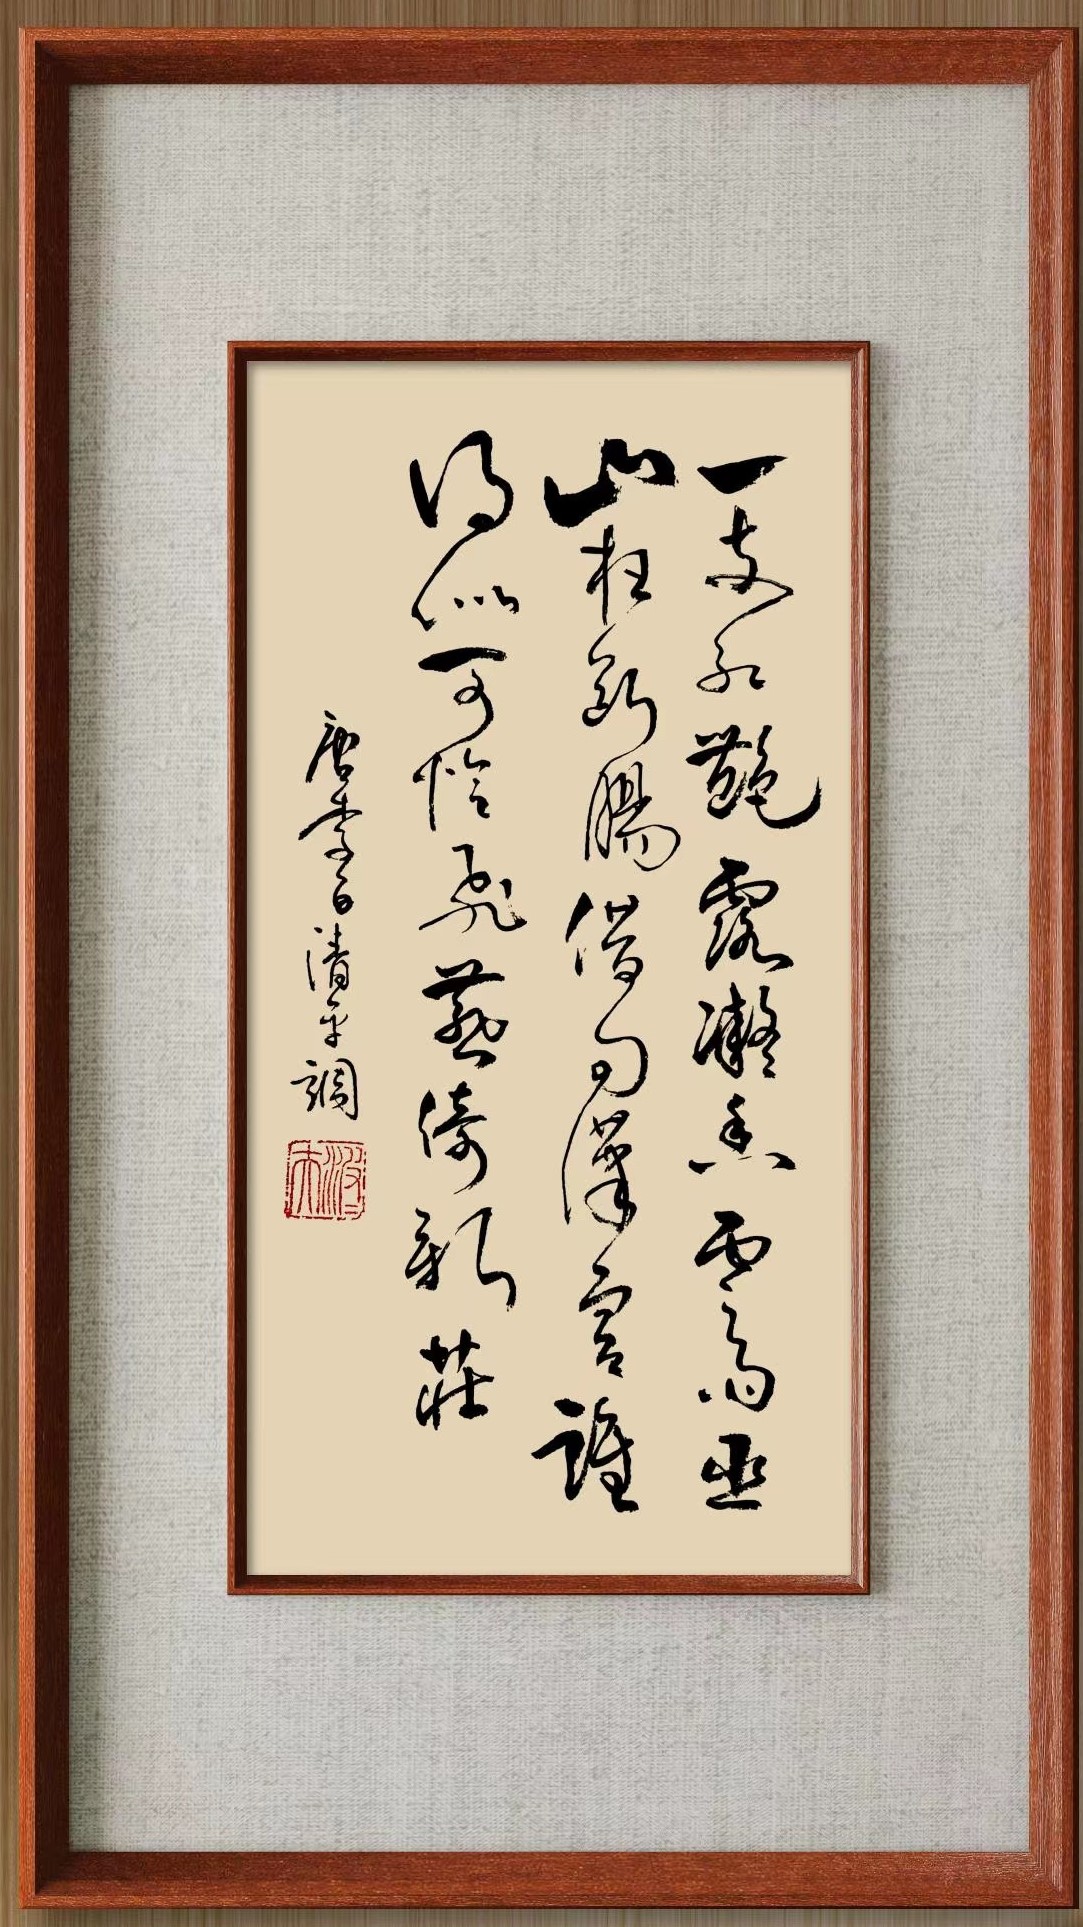 一支紅艷露凝香雲雨巫
山枉斷腸借句漢宮誰
得似可憐飛燕倚新莊
唐李白清平調